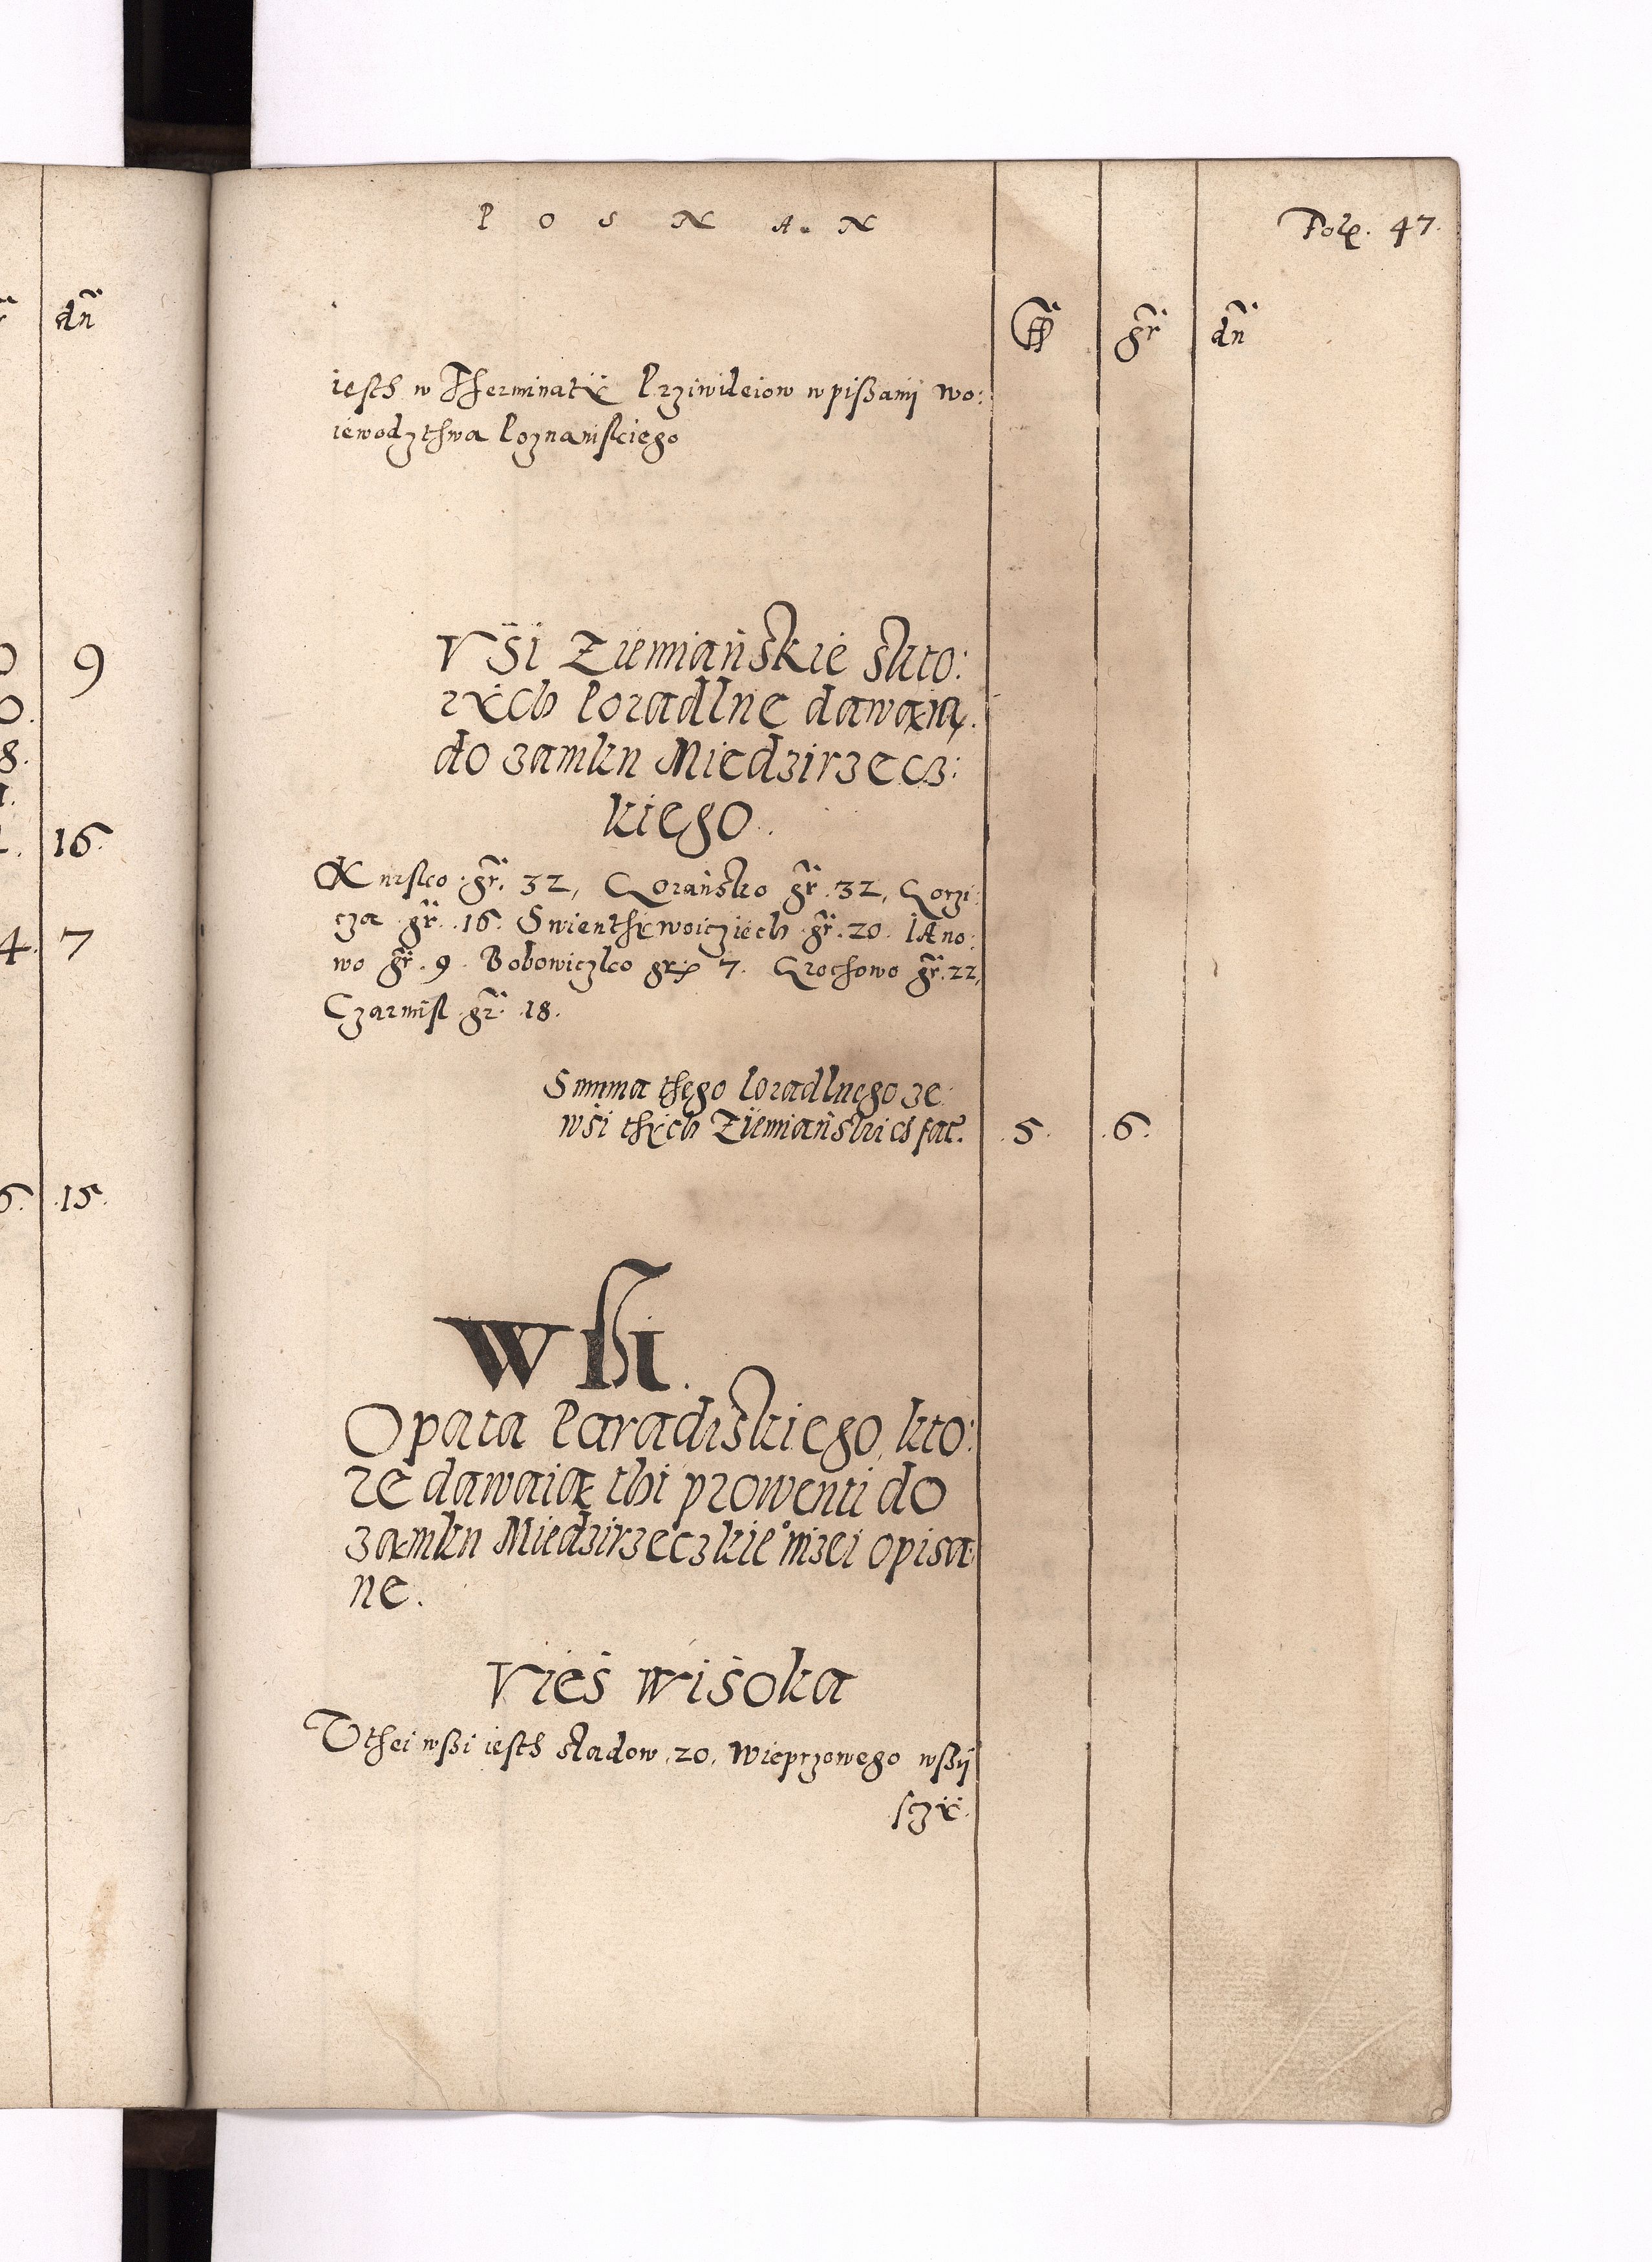 POSNAN
Fol. 47.
dn̄
fl gr dn
iesth w Therminatÿ Przÿwileiow wpißanÿ wo:
iewodzthwa Poznanskiego
Vsi Ziemiańskie skto:
rÿch Poradlne dawaią.
do zamku Miedzirzecz:
kiego.
9
0.
8.
16.
4. 7
gr. 32, Gorańsko gr. 32, Gorzi:
cza gr. 16. Swienthÿwoicziech gr. 20. IAno:
wo gr. 9. Bobowiczko gr. 7. Grochowo gr. 22,
gr. 18.
Summa thego Poradlnego ze
wśi thÿch Ziemiańskich fac. 5. 6.
6. 15.
Wßi.
Opata Paradiskiego, kto:
re dawaią thi prowenti do
zamku Miedzirzeczkie° niżei opisa:
ne.
Vieś Wisoka
W thei wßi iesth śladow 20. Wieprzowego wßÿ
sczÿ.